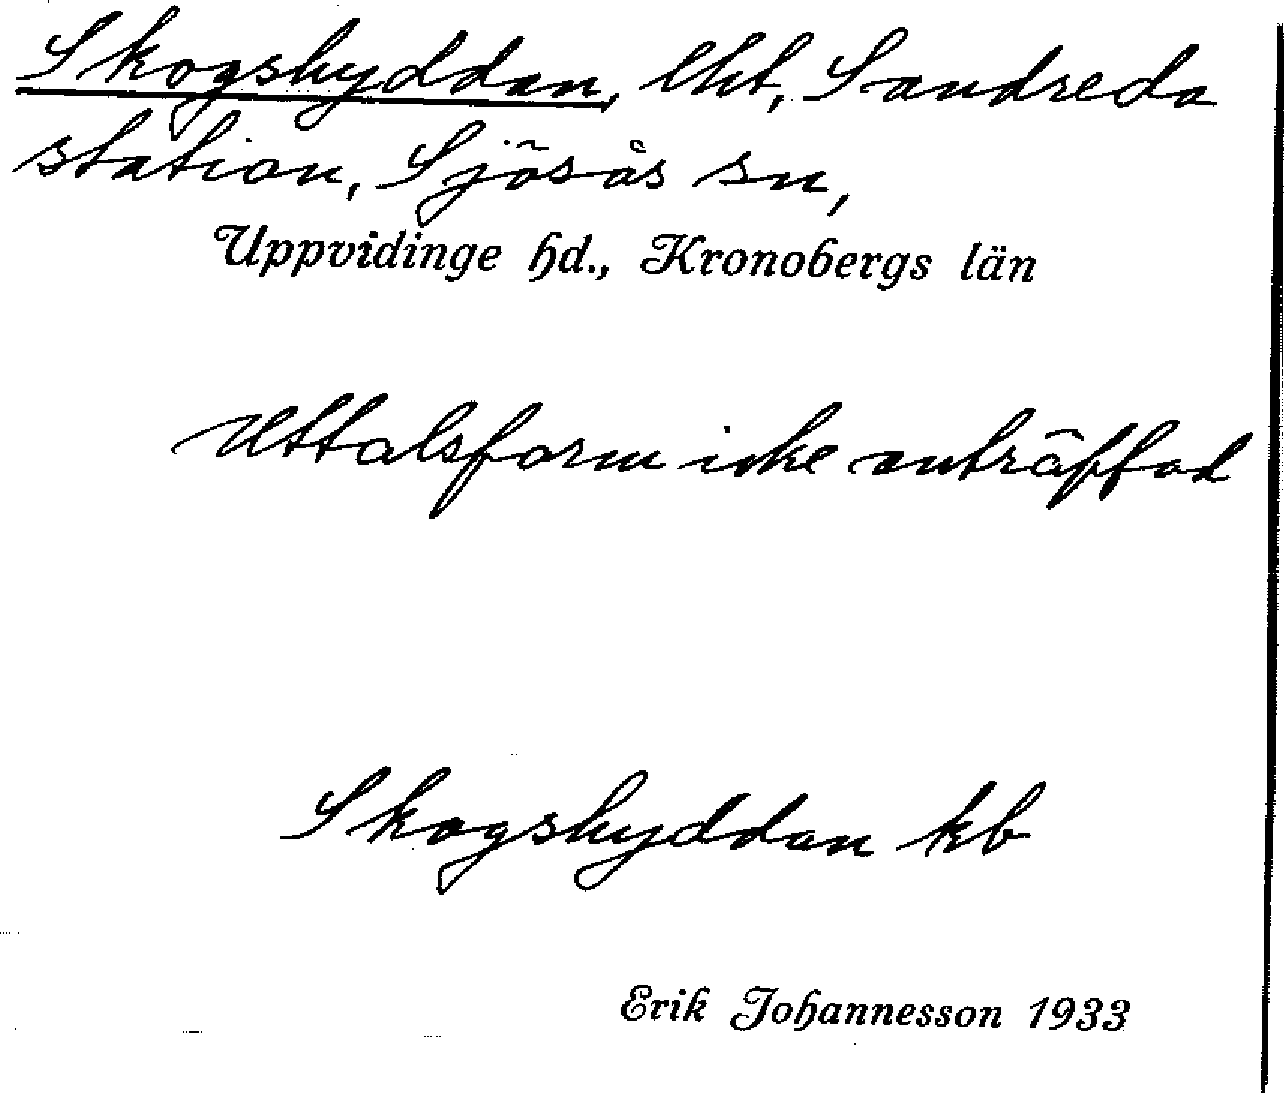 Skogshyddan, lht, Sandreda
station, Sjösås sn,
Uppvidinge hd., Kronobergs län
Uttalsform icke anträffad
Skogshyddan kb
Erik Johannesson 1933